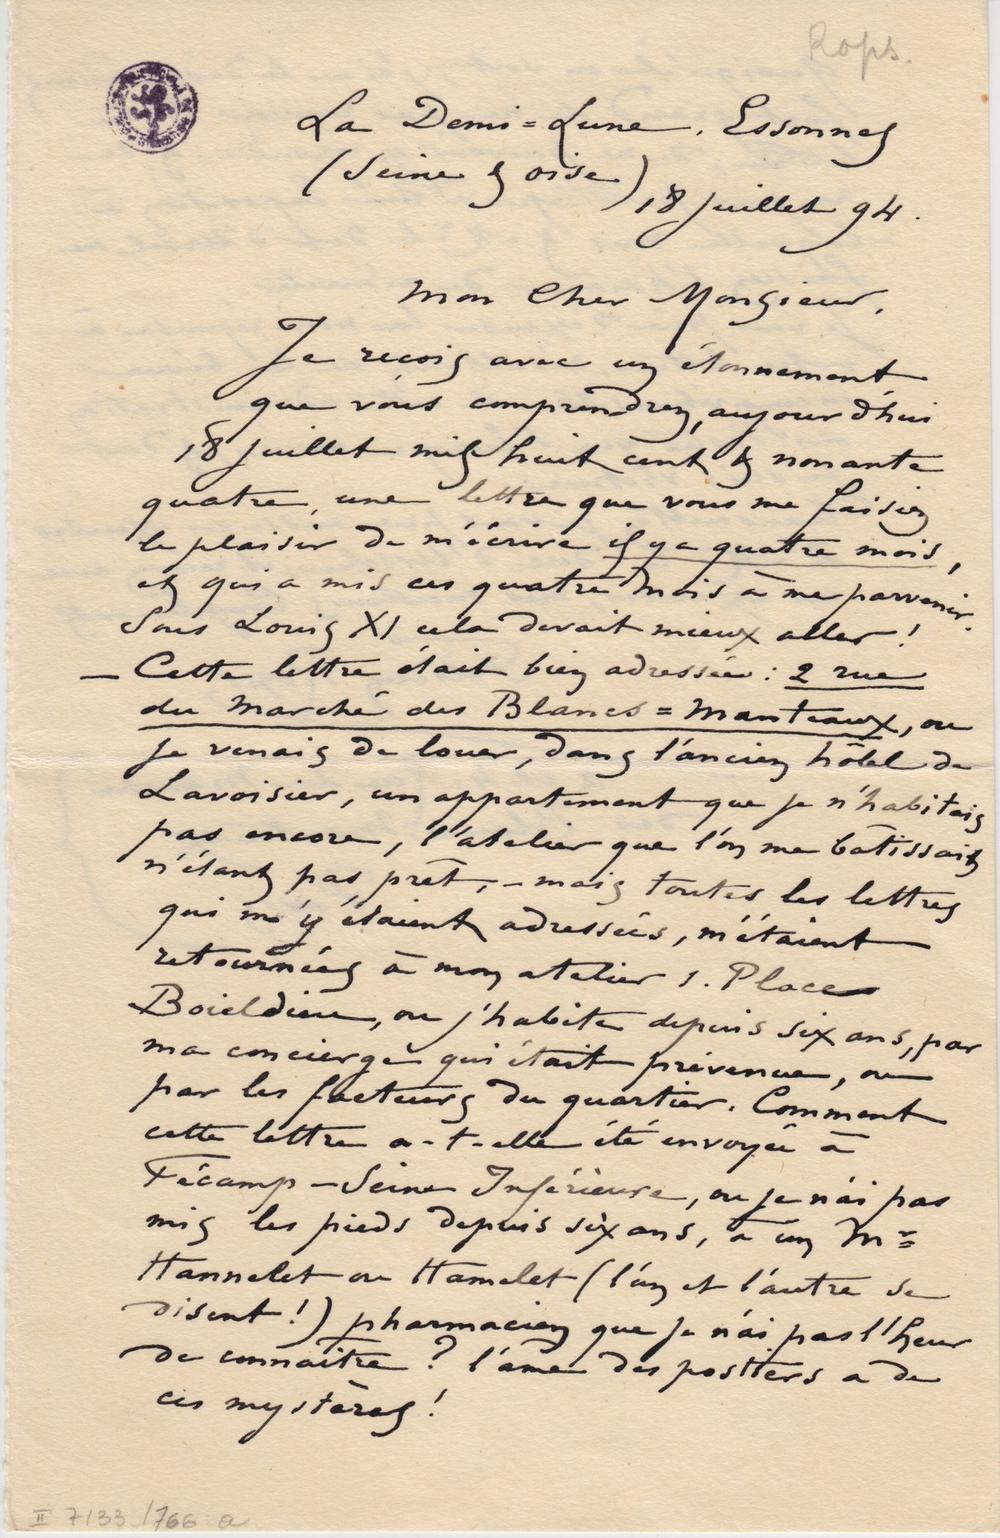 Rops.
La Demi=Lune. Essonnes
(Seine & oise) 18 juillet 94.
Mon Cher Monsieur,
Je reçois avec un étonnement
que vous comprendrez, aujourd'hui
18 juillet mil huit cent & nonante
quatre, une lettre que vous me faisiez
le plaisir de m'écrire il y a quatre mois,
et qui a mis ces quatre mois à me parvenir.
Sous Louis XI cela devait mieux aller!
— Cette lettre était bien adressée: 2 rue
du Marché des Blancs=Manteaux, ou
je venais de louer, dans l'ancien hôtel de
Lavoisier, un appartement que je n'habitais
pas encore, l'atelier que l'on me bâtissait
n'étant pas prêt, – mais toutes les lettres
qui m'y étaient adressées, m'étaient
retournées à mon atelier 1. Place
Boieldieu, ou j'habite depuis six ans, par
ma concierge qui était prévenue, ou
par les facteurs du quartier. Comment
cette lettre a-t-elle été envoyée à
Fécamp – Seine Inférieure, ou je n'ai pas
mis les pieds depuis six ans, à un Mr
Hannelet ou Hamelet (l'un et l'autre se
disent!) pharmacien que je n'ai pas l'heur
de connaître? l'âme des postiers a de
ces mystères!
II 7133/766 a